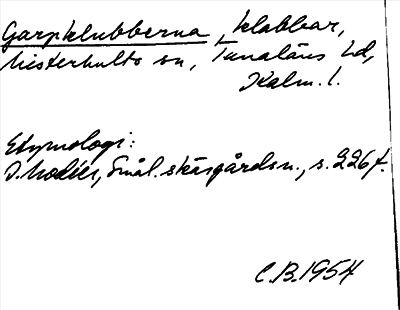 Garpklubberna, klabbar,
Misterhults sn, Tunaläns hd,
Kalm. l.
Etymologi:
I. Modéer, Smål. skärgårdsn., s. 226 f.
C.B. 1954